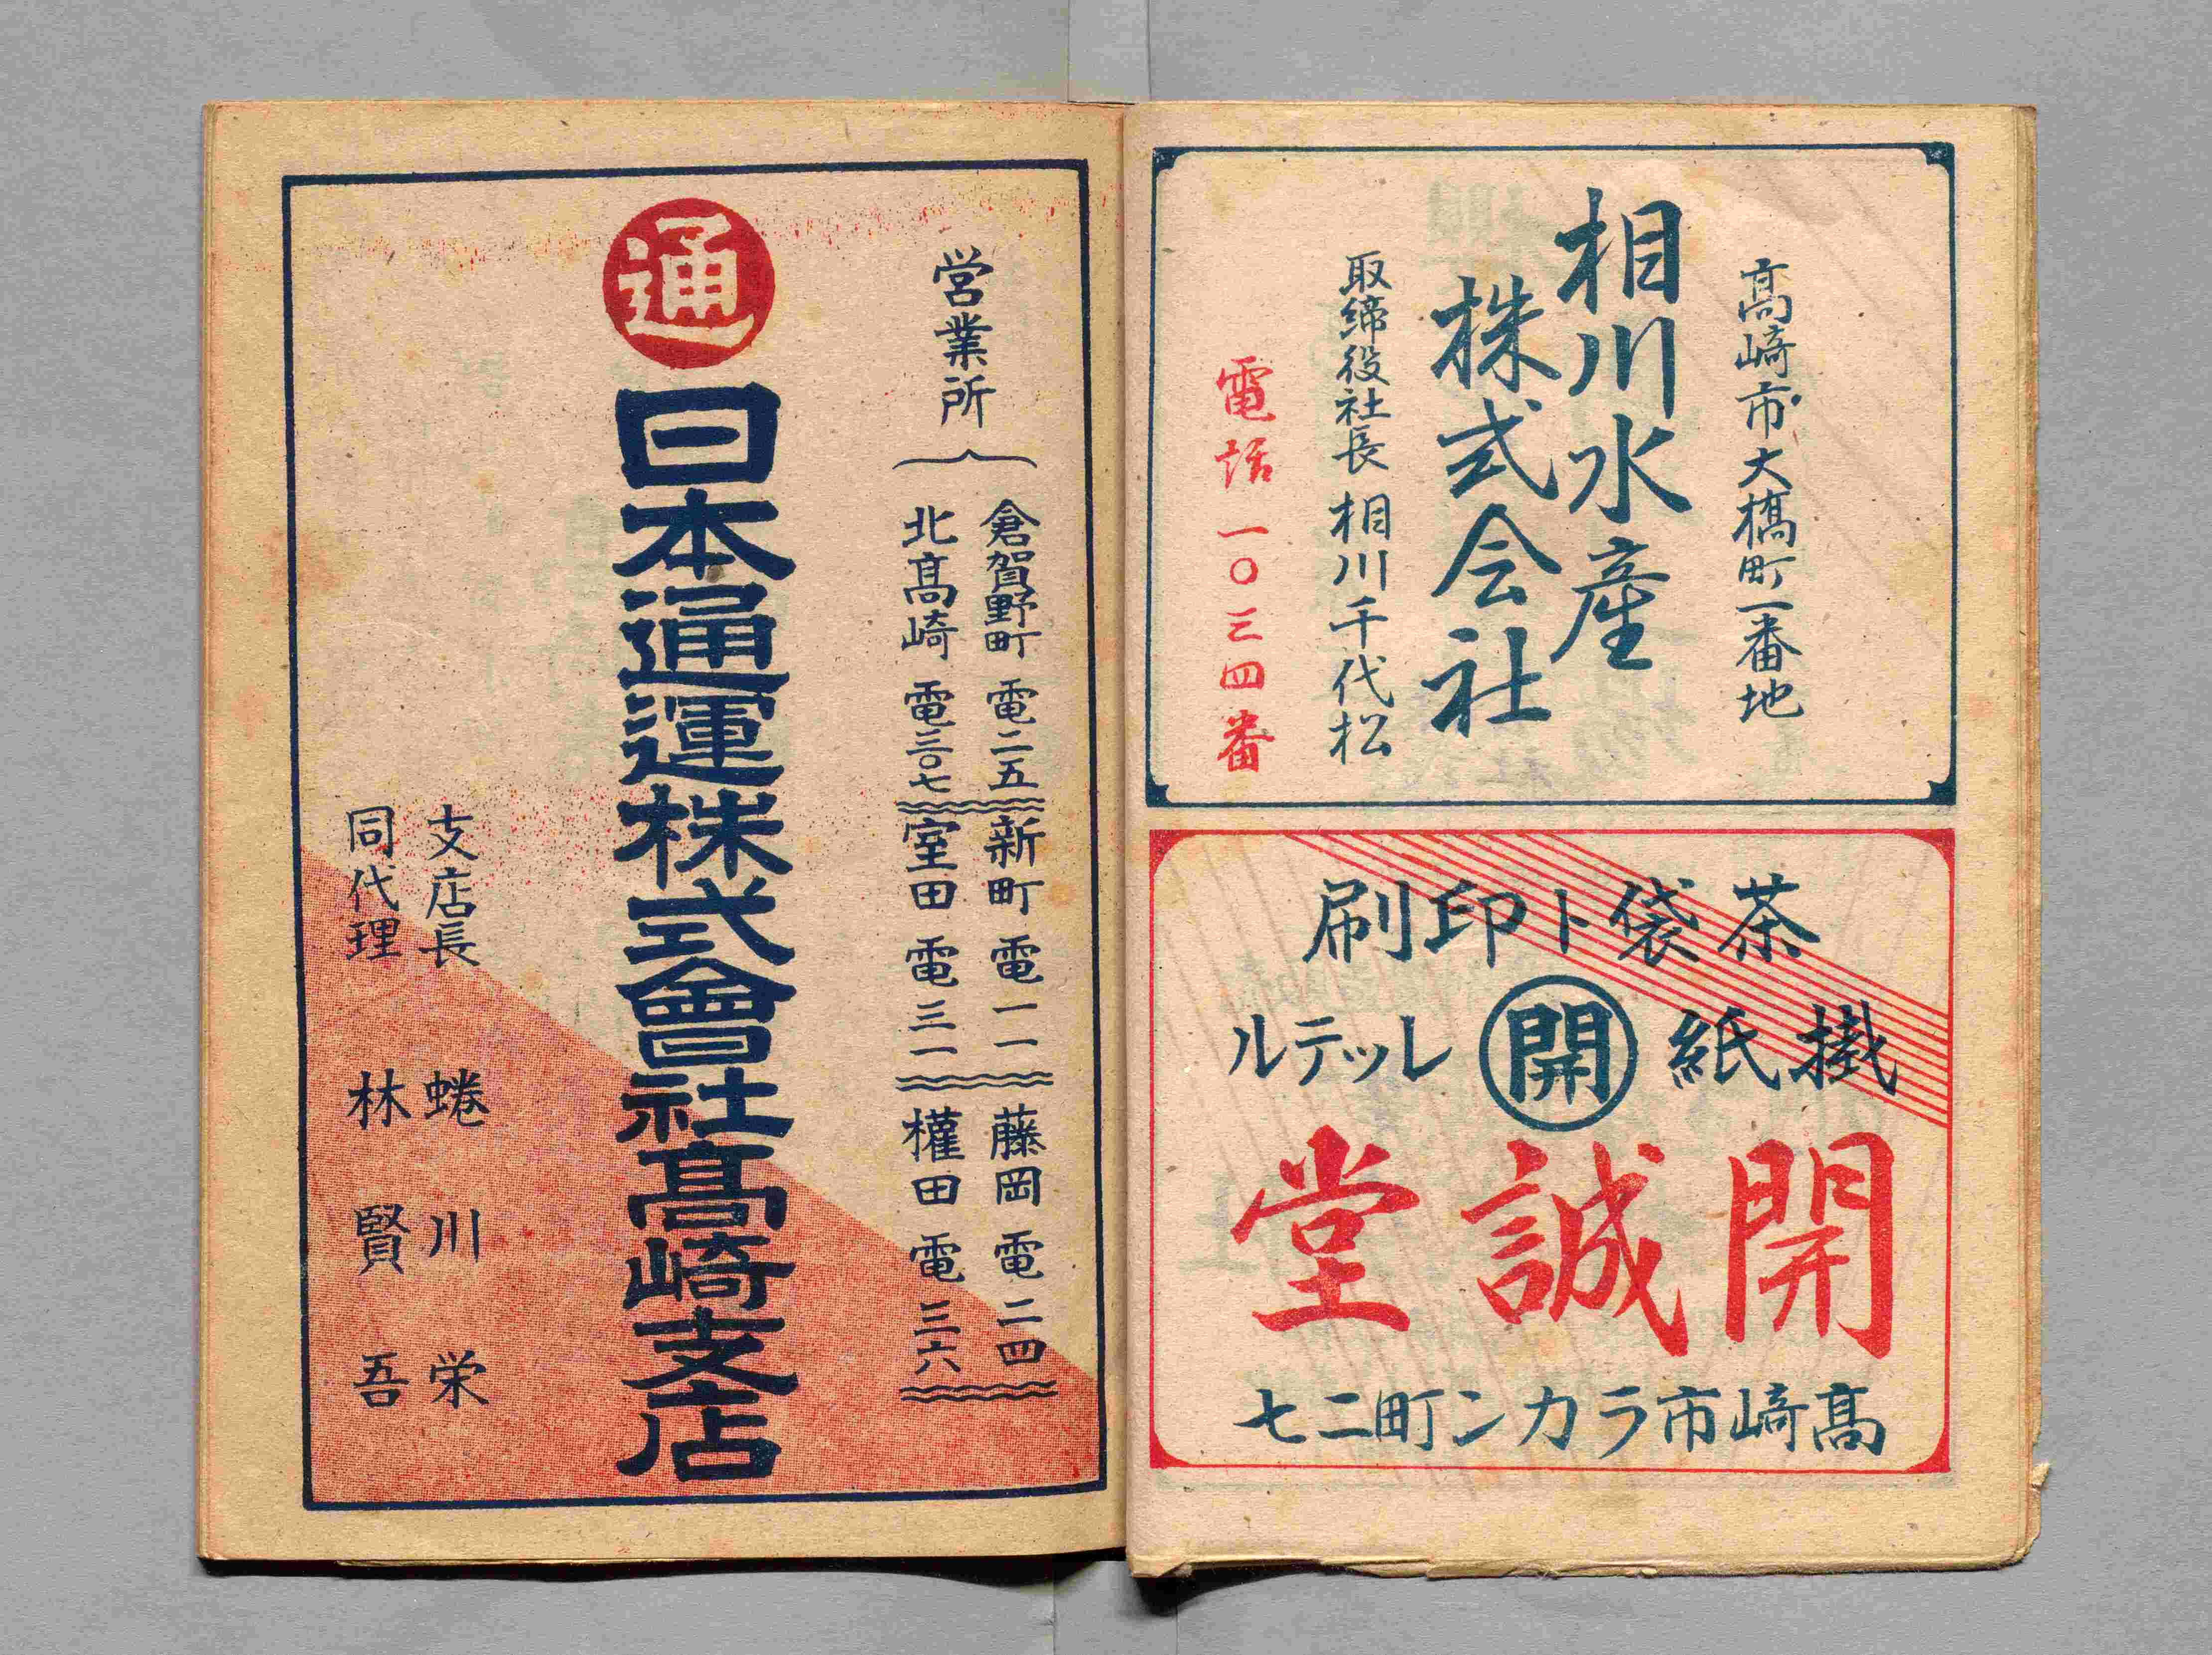 髙崎市大橋町一番地
相川水産
株式会社
取締役社長 相川千代松
電話 一〇三四番
茶袋ト印刷
掛紙 開 レッテル
開誠堂
髙崎市ラカン町二七
営業所
倉賀野町 電二五 新町 電一一 藤岡 電二四
北髙崎 電三〇七 室田 電三一 權田 電三六
通
日本通運株式會社髙崎支店
支店長 蜷川栄
同代理 林賢吾